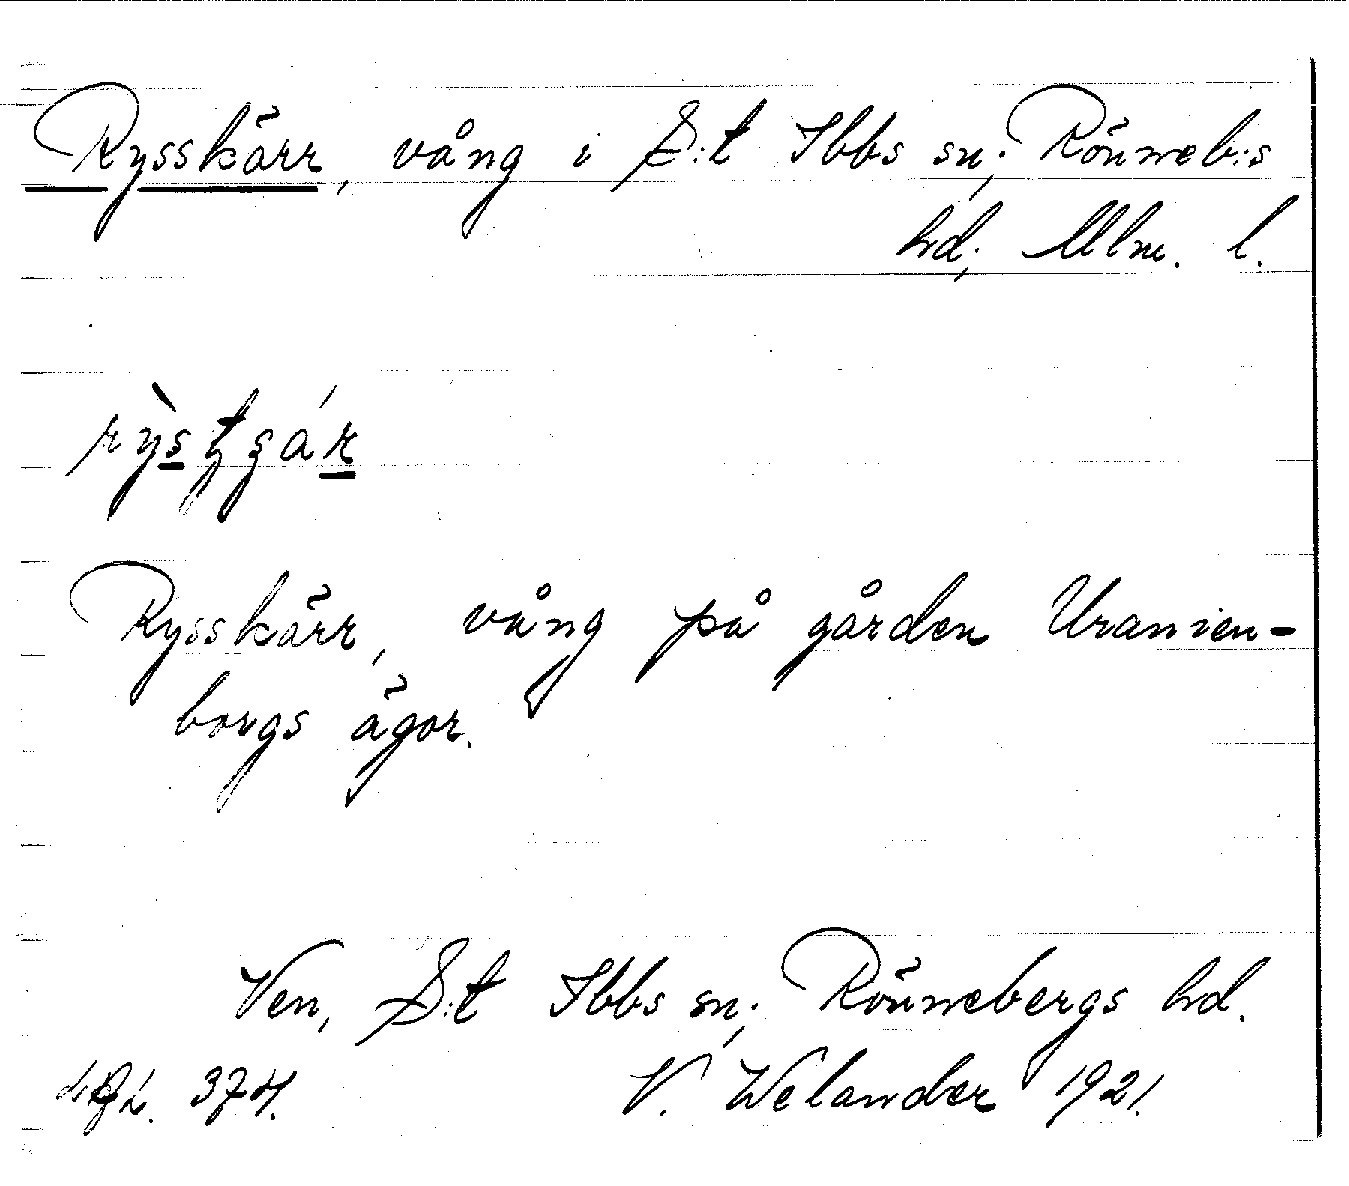 Rysskärr, vång i S:t Ibbs sn; Rönneb:s
hd; Mlm. l.
Rysskärr, vång på gården Uranien-
borgs ägor.
Ven, S:t Ibbs sn; Rönnebergs hd.
374. V. Welander 1921.